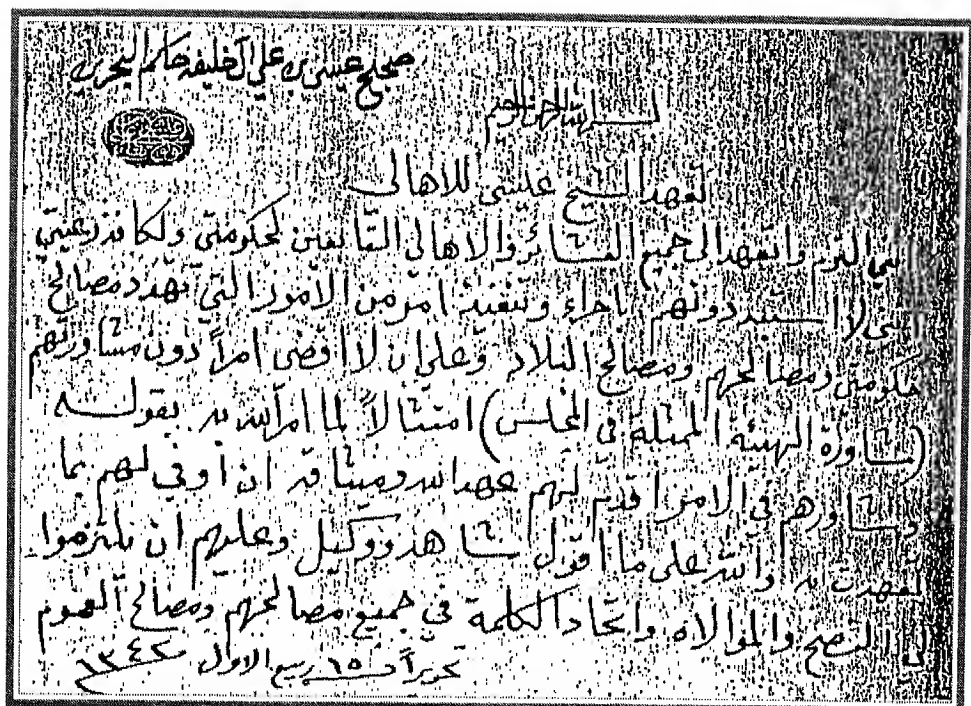 صحيح عيسى بن علي آل خليفة حاكم البحرين
بسم الله الرحمن الرحيم
تعهد الشيخ عيسى للاهالي
التزم واتعهد الى جميع العشائر والاهالي التابعين لحكومتي ولكافة رعيتي
لا استبد دونهم باجراء وتنفيذ امر من الامور التي تهدد مصالح
حكومتي ومصالحهم ومصالح البلاد وعلي ان لا اقضى امراً دون مشاورتهم
(مشاورة الهيئة الممثلة في المجلس) امتثالاً لما امر الله به بقوله
وشاورهم في الامر اقدم لهم عهد الله وميثاقه ان أوفي لهم بما
تعهدت به والله على ما اقول شاهد ووكيل وعليهم ان يلتزموا
لي النصح والموالاه واتحاد الكلمة في جميع مصالحهم ومصالح العموم
تحريراً في ١٥ ربيع الاول ١٣٤٢